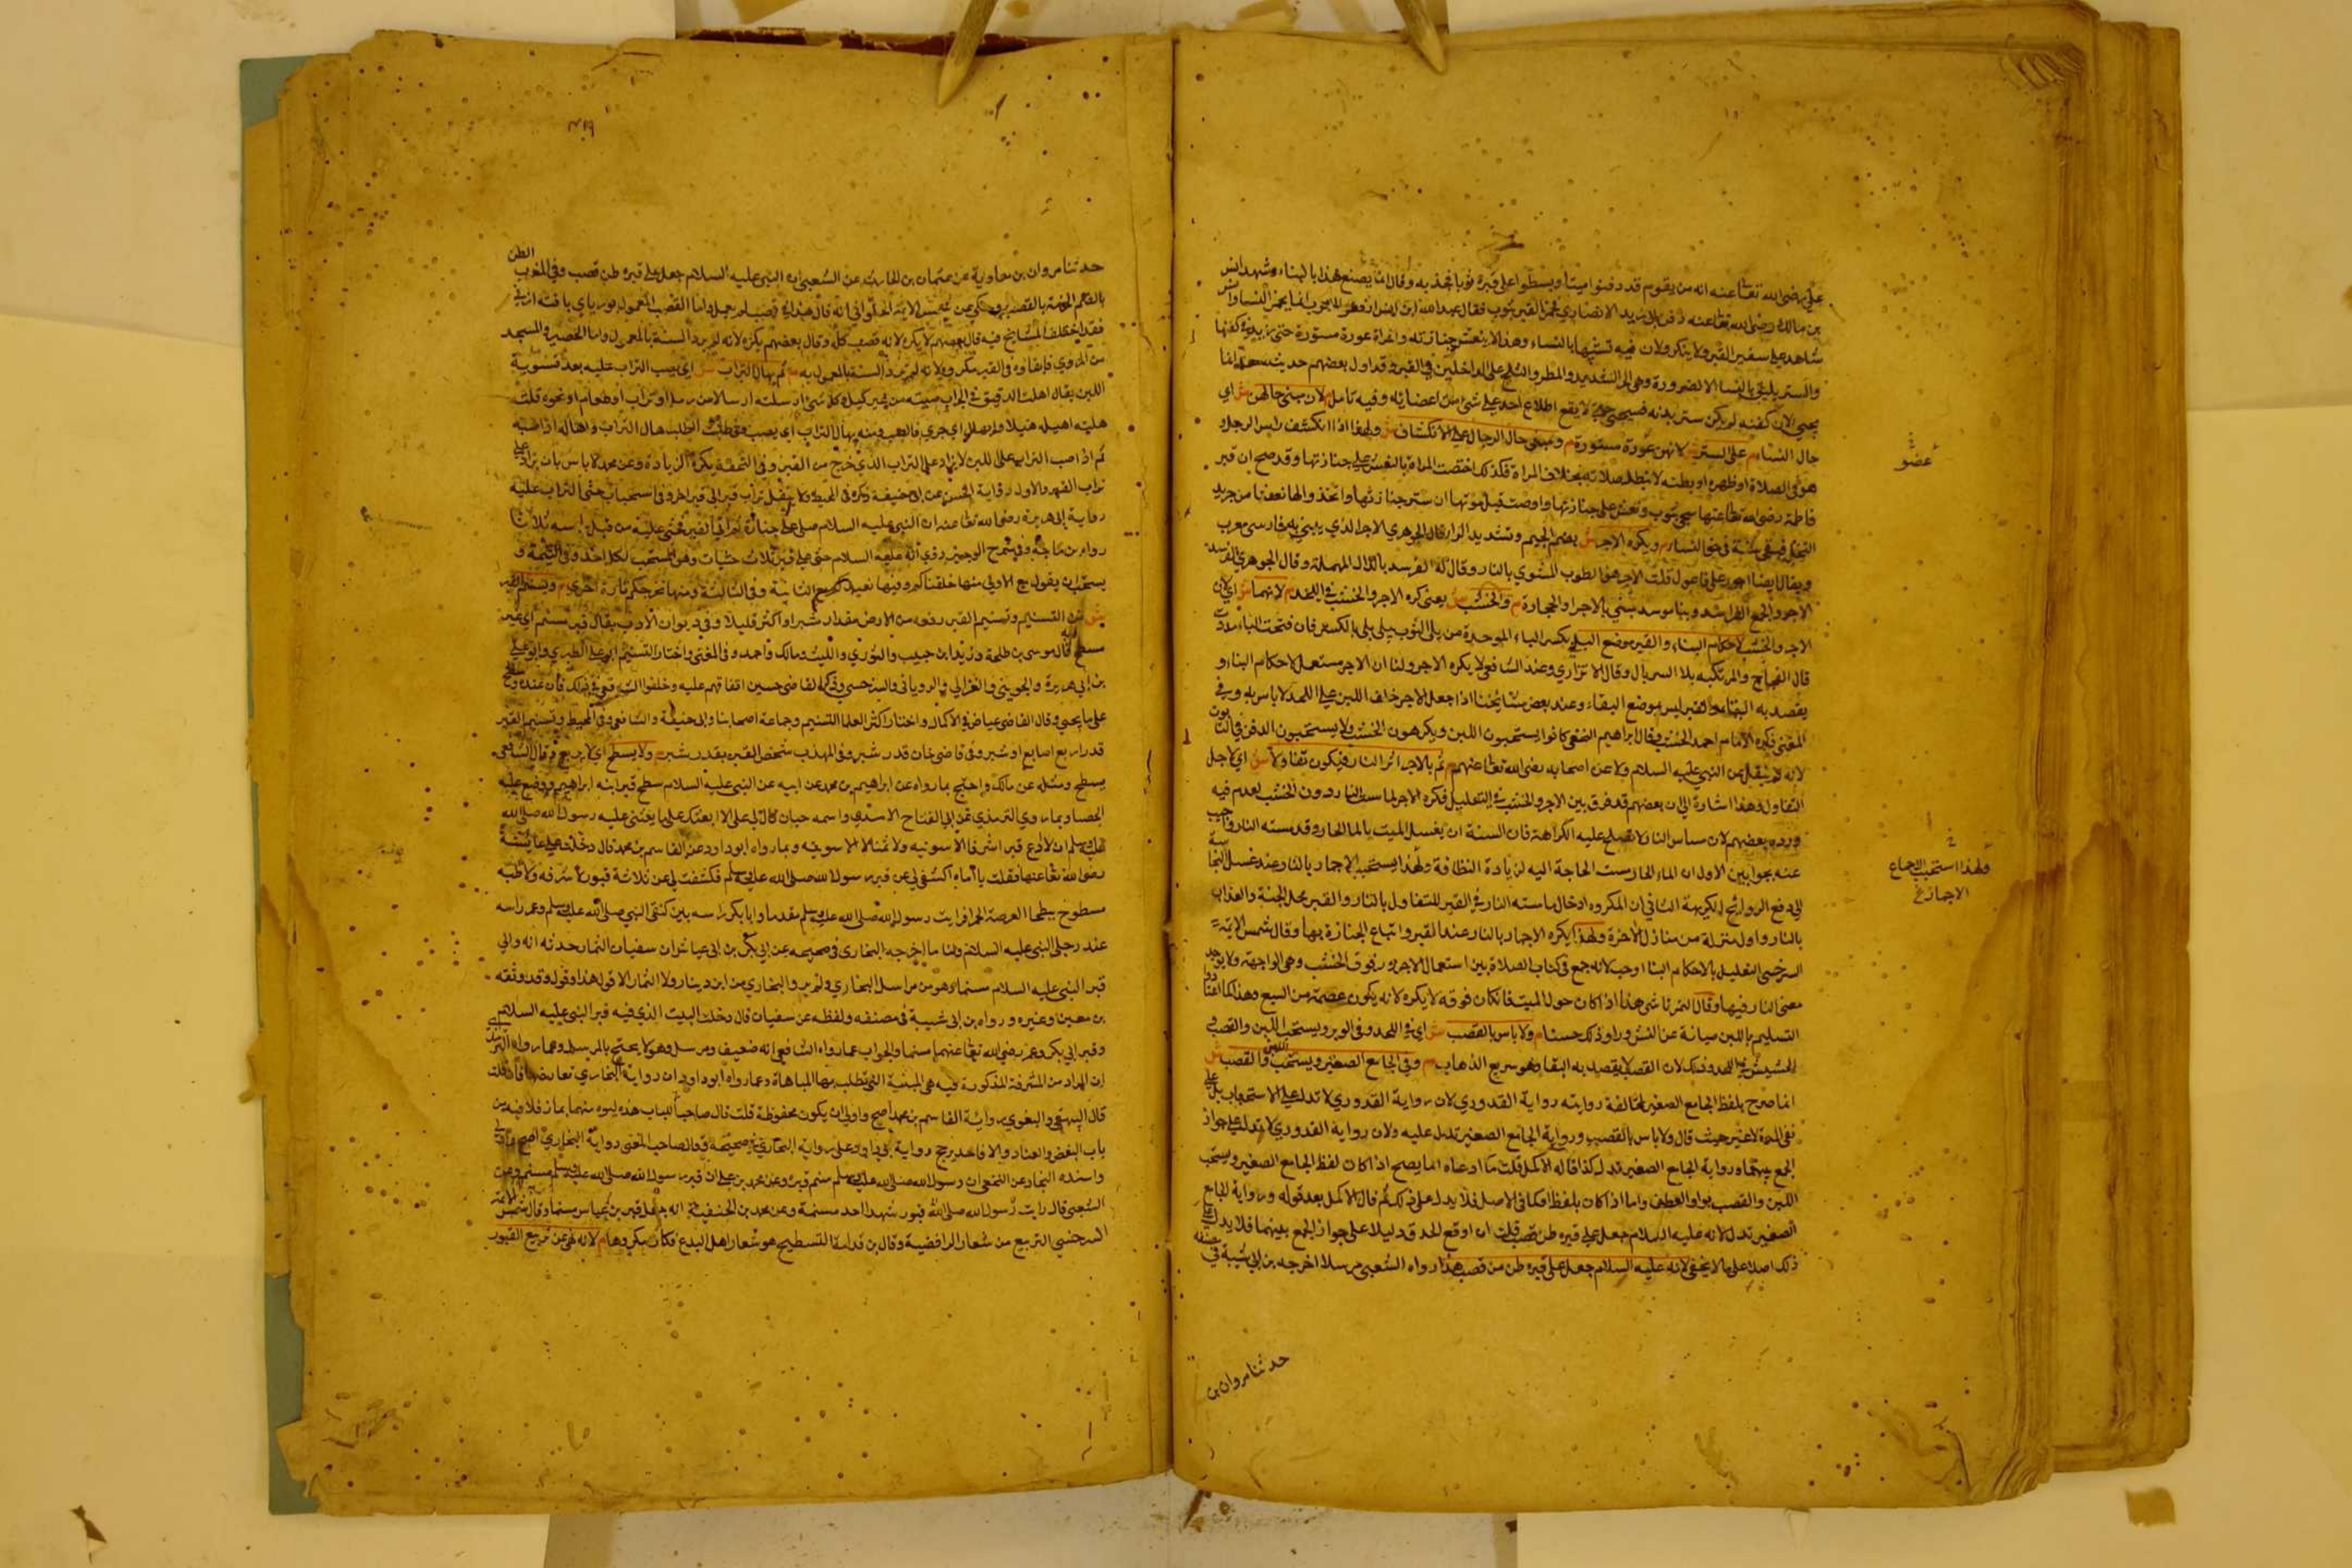 علي رضي الله تعالى عنه انه من بقوم قد دفنوا ميتا وبسطوا على قبره ثوبا فجذبه وقال انما يصنع هذا بالنساء وشهد انس
بن مالك رضي الله تعالى عنه دفن ابي زيد الانصاري فخمر القبر بثوب فقال عبد الله ابن انس ارفعوا الثوب انما يخمر النساء وانس
شاهد على شفير القبر ولا ينكر ولان فيه تشبها بالنساء وهذا لا ينعش جنازته والمراة عورة مستورة حتى يزيد في كفنها
والستر يليق بالنساء الا لضرورة وهي الحر الشديد والمطر والثلج على الداخلين في القبر وقد اول بعضهم حديث سعد انما
يسجى لان كفنه لم يكن ستر بدنه فسجي حتى لا يقع اطلاع احد على شئ من اعضائه وفيه تامل م لان مبنى حالهن ش اي
حال النساء م على الستر ش لانهن عورة مستورة م ومبنى حال الرجال على الانكشاف ش ولهذا اذا انكشف راس الرجل
عضو
هو في الصلاة او ظهره او بطنه لا تبطل صلاته بخلاف المراة فكذلك اختصت المراة بالنعش على جنازتها وقد صح ان قبر
فاطمة رضي الله تعالى عنها سجي بثوب ونعش على جنازتها واوصت قبل موتها ان تستر جنازتها واتخذوا لها نعشا من جريد
النخل فبقي سنة في حق النساء م ويكره الاجر ش بضم الجيم وتشديد الراء قال الجوهري الاجر الذي يبنى به فارسي معرب
ويقال ايضا اجور على فاعول قلت الاجر هو الطوب المشوي بالنار
الاجر والجمع الفراسد وبنا موسد مبني بالاجر او الحجارة م والخشب ش يعني كره الاجر والخشب في اللحد م لانهما ش اي لان
الاجر والخشب لاحكام البناء والقبر موضع البلى بكسر الباء الموحدة من بلي الثوب يبلى بلى بالكسر فان فتحت الباء مددت
قال العجاج والمرء تكبيه بلا السربال وقال الاترازي وعند الشافعي لا يكره الاجر ولنا ان الاجر مستعمل لاحكام البناء و
يقصد به البقاء والقبر ليس موضع البقاء وعند بعض مشايخنا اذا جعل الاجر خلف اللبن على اللحد لا باس به وفي
المغني فكره الامام احمد الخشب وقال ابراهيم النخعي كانوا يستحبون اللبن ويكرهون الخشب ولا يستحبون الدفن في التابوت
لانه لم ينقل عن النبي عليه السلام ولا عن اصحابه رضي الله تعالى عنهم م ثم بالاجر اثر النار فيكون تفاولا ش اي لاجل
التفاول وهذا اشارة الى ان بعضهم قد فرق بين الاجر والخشب في التعليل فكره الاجر لما مسته النار دون الخشب لعدم فيه
ورده بعضهم لان مساس النار لا تصلح علة الكراهة فان السنة ان يغسل الميت بالماء الحار وقد مسته النار واجيب
عنه بجوابين الاول ان الماء الحار مست الحاجة اليه لزيادة النظافة ولهذا يستحب الاجمار بالنار وعند غسل النجاسة
ولهذا استحب الاجماع
الاجمار خ
الى دفع الروائح الكريهة الثاني ان المكروه ادخال ما مسته النار في القبر للتفاول بالنار والقبر محل الجنة والعذاب
بالنار واول منزلة من منازل الاخرة ولهذا يكره الاجمار بالنار عند القبر واتباع الجنازة بها وقال شمس الائمة
السرخسي التعليل بالاحكام البناء اوجب لانه جمع في كتاب الصلاة بين استعمال الاجر ورفوف الخشب وهي الواجهة ولا يوجد
معنى النار فيها وقال التمرتاشي هذا اذا كان حول الميت فان كان فوقه لا يكره لانه يكون عصمة من السبع وهذا كما اعتادوا
التسليم باللبن صيانة عن النبش وراوا ذلك حسنا م ولا باس بالقصب ش اي في اللحد وفي الوبري ويستحب اللبن والقصب و
الحشيش في اللحد وذلك لان القصب لا يقصد به البقاء وهو سريع الذهاب م وفي الجامع الصغير ويستحب اللبن والقصب ش
انما صرح بلفظ الجامع الصغير لمخالفة روايته رواية القدوري لان رواية القدوري لا تدل على الاستحباب بل على
نفي الشدة لا غير حيث قال ولا باس بالقصب ورواية الجامع الصغير تدل عليه ولان رواية القدوري لا تدل على جواز
الجمع بينهما ورواية الجامع الصغير تدل كذا قاله الاكمل قلت ما ادعاه انما يصح اذا كان لفظ الجامع الصغير ويستحب
اللبن والقصب بواو العطف واما اذا كان بلفظ او كما في الاصل فلا يدل على ذلك ثم قال الاكمل بعد قوله ورواية الجامع
الصغير تدل لانه عليه السلام جعل على قبره طن قصب قلت ان اوقع الحد قد دليلا على جواز الجمع بينهما فلا يدل على
ذلك اصلا على ما لا يخفى لانه عليه السلام جعل على قبره طن من قصب هذا رواه الشعبي مرسلا اخرجه بن ابي شيبة في مصنفه
حدثنا مروان بن
حدثنا مروان بن معاوية عن عثمان بن الحارث عن الشعبي ان النبي عليه السلام جعل على قبره طن قصب وفي المغرب الطن
بالضم الحزمة بالقصب وحكي عن شمس الائمة الحلواني انه قال هذا في قصب لم يعمل واما القصب المعمول بوريا اي بافته اند ني
فقد اختلف المشايخ فيه قال بعضهم لا يكره لانه قصب كله وقال بعضهم يكره لانه لم يرد السنة بالمعمول واما الحصير والمسجد
من البردي فابقاوه في القبر مكروه لانه لم يرد السنة بالمعمول به م ثم يهال التراب ش اي يصب التراب عليه بعد تسوية
اللبن يقال اهلت الدقيق في الجراب صببته من غير كيل وكل شئ ارسلته ارسالا من رمل او تراب او طعام او نحوه قلت
هلته اهيله هيلا فانهال اي جرى فانصب ومنه يهال التراب اي يصب وفي طلبة الطلبة هال التراب واهاله اذا صبه
ثم اذا صب التراب على اللبن لا يزاد على التراب الذي خرج من القبر وفي التحفة يكره الزيادة وعن محمد لا باس بان يزاد على
تراب القبر والاول رواية الحسن عن ابي حنيفة ذكره في المحيط ولا ينقل تراب قبر الى قبر اخر وفي استحباب حثي التراب عليه
رواية ابي هريرة رضي الله تعالى عنه ان النبي عليه السلام صلى على جنازة ثم اتى القبر فحثى عليه من قبل راسه ثلاثا
رواه بن ماجة وفي شرح الوجيز روي انه عليه السلام حثى على قبر ثلاث حثيات وهو المستحب لكل احد وفي التتمة و
يستحب ان يقول مع الاولى منها خلقناكم وفيها نعيدكم مع الثانية وفي الثالثة ومنها نخرجكم تارة اخرى م ويسنم القبر
ش من التسنيم وتسنيم القبر رفعه من الارض مقدار شبر او اكثر قليلا وفي ديوان الادب يقال قبر مسنم اي غير
مسطح قال موسى بن طلحة ويزيد ابن حبيب والثوري والليث ومالك واحمد وفي المغني واختار التسنيم ابو علي الطبري وابو علي
بن ابي هريرة والجويني والغزالي والروياني والسرخسي وذكر القاضي حسين اتفاقهم عليه وخلفوا الشافعي في ذلك فان عنده يسطح
على ما يجئ وقال القاضي عياض في الاكمال واختار اكثر العلماء التسنيم وجماعة اصحابنا وابي حنيفة والشافعي وفي المحيط وتسنيم القبر
قدر اربع اصابع او شبر وفي قاضي خان قدر شبر وفي المهذب شخص القبر بقدر شبر م ولا يسطح اي لا يربع وقال الشافعي
يسطح ومثله عن مالك واحتج بما رواه عن ابراهيم بن محمد عن ابيه عن النبي عليه السلام سطح قبر ابنه ابراهيم ووضع عليه
الحصا وبما روي الترمذي عن ابي الهياج الاسدي واسمه حيان قال لي علي الا ابعثك على ما بعثني عليه رسول الله صلى الله
عليه وسلم ان لا ادع قبرا مشرفا الا سويته ولا تمثالا الا سويته وبما رواه ابو داود عن القاسم بن محمد قال دخلت على عائشة
رضي الله تعالى عنها فقلت يا اماه اكشفي لي عن قبر رسول الله صلى الله عليه وسلم فكشفت لي عن ثلاثة قبور لا مشرفة ولا لاطية
مبطوحة ببطحاء العرصة الحمراء فرايت رسول الله صلى الله عليه وسلم مقدما وابا بكر راسه بين كتفي النبي صلى الله عليه وسلم وعمر راسه
عند رجلي النبي عليه السلام ولنا ما اخرجه البخاري في صحيحه عن ابي بكر بن ابي عياش ان سفيان التمار حدثه انه راى
قبر النبي عليه السلام مسنما وهو من مراسيل البخاري ولم يرو البخاري من ابن دينار ولا التمار الا قوله هذا وقد وثقه
بن معين وغيره ورواه بن ابي شيبة في مصنفه ولفظه عن سفيان قال دخلت البيت الذي فيه قبر النبي عليه السلام
وقبر ابي بكر وعمر رضي الله تعالى عنهما مسنما والجواب عما رواه الشافعي انه ضعيف ومرسل وهو لا يحتج بالمرسل وعما رواه الترمذي
ان المراد من المشرفة المذكورة فيه هي المبنية التي تطلب بها المباهاة وعما رواه ابو داود ان رواية البخاري تعارضها فان قلت
قال البيهقي والبغوي رواية القاسم بن محمد اصح واولى ان يكون محفوظة قلت قال صاحب اللباب هذه لبوة منهما بما زفلا فيه من
باب البغض والعناد والا فاحد يرجح رواية ابي داود على رواية البخاري في صحيحه وقال صاحب المغني رواية البخاري اصح واولى
واسنده البخاري عن النخعي ان رسول الله صلى الله عليه وسلم سنم قبره وعن محمد بن علي ان قبر رسول الله صلى الله عليه وسلم مسنم وعن
الشعبي قال رايت رسول الله صلى الله قبور شهداء احد مسنمة وعن محمد بن الحنفية انه جعل قبر بن عباس مسنما وقال شمس الائمة
السرخسي التربيع من شعار الرافضية وقال بن قدامة التسطيح هو شعار اهل البدع فكان مكروها م لانه نهي عن تربيع القبور